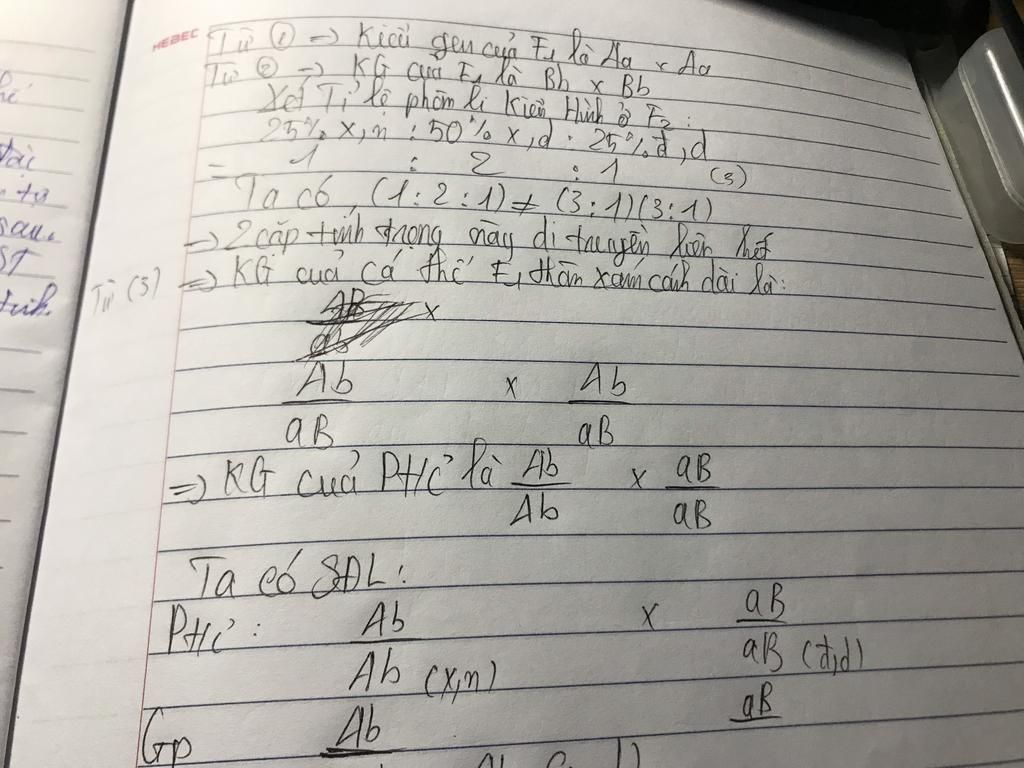 HEBEC
Từ ① => Kiểu gen của F1 là Aa x Aa
Từ ② => KG của F1 là Bb x Bb
Xét Tỉ lệ phân li Kiểu Hình ở F2:
25% x,n : 50% x,d : 25% đ,d
= 1 : 2 : 1 (3)
Ta có, (1:2:1) ≠ (3:1)(3:1)
=> 2 cặp tính trạng này di truyền liên kết
Từ (3) => KG cuả cá thể F1 thân xám cánh dài là:
x
Ab x Ab
aB aB
=> KG cuả PT/C là Ab x aB
Ab aB
Ta có SĐL:
PT/C: Ab x aB
Ab (x,n) aB (đ,d)
Gp Ab aB